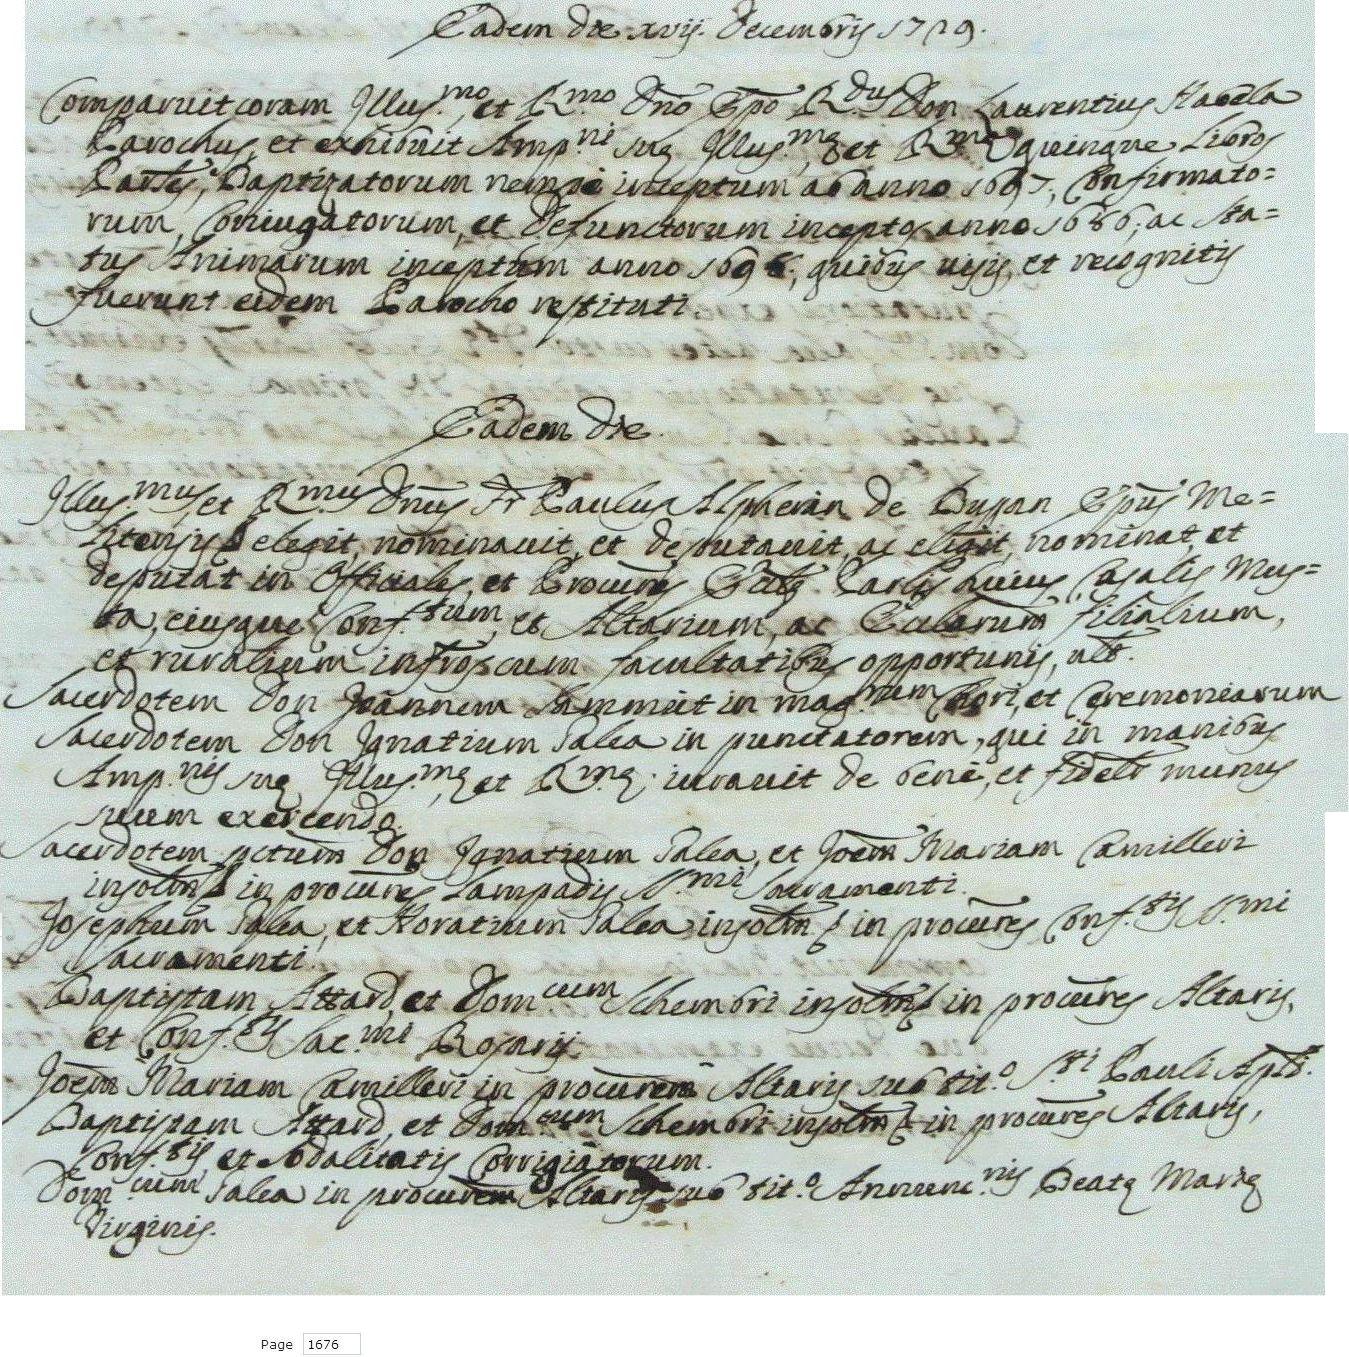 Eadem die xvij. Decembris 1729.
Comparuit coram Illus.mo, et R.mo Dño Epo R.dus Don Laurentius Habela
Parochus, et exhibuit Amp.ni suę Illus.mę et R.mę quinque Libros
Parles, Baptizatorum nempe inceptum ab anno 1697, Confirmato=
rum, Coniugatorum, et Defunctorum inceptos anno 1686; ac Sta=
tus Animarum inceptum anno 1696; quibus visis, et recognitis
fuerunt eidem Parocho restituti.
Eadem die.
Illus.mus, et R.mus Dñus Fr Paulus Alpheran de Bussan Epus Me=
litensis elegit, nominauit, et deputauit, ac eligit, nominat, et
deputat in Officiales, et Procures Parlis huius Casalis Mus=
ta, eiusque Conf.tum, et Altarium, ac Ecclarum filialium,
et ruralium infros cum facultatibus opportunis, ult.
Sacerdotem Don Joannem Sammut in mag.rum Chori, et Ceremoniarum
Sacerdotem Don Ignatium Galea in punctatorem, qui in manibus
Amp.nis suę Illus.mę, et R.mę iurauit de bene, et fidelr munus
suum exercendo.
Sacerdotem pctum Don Ignatium Galea, et Joem Mariam Camilleri
insolm in procures Lampadis S.mi Sacramenti.
Josephum Galea, et Horatium Galea insolm in procures Conf.tis S.mi
Sacramenti.
Baptistam Attard, et Dom.cum Schembri insolm in procures Altaris,
et Conf.tis Sac.mi Rosarij
Joem Mariam Camilleri in procurem Altaris sub tit.o S.ti Pauli Apli.
Baptistam Attard, et Dom.cum Schembri insolm in procures Altaris,
Conf.tis, et Sodalitatis Corrigiatorum.
Dom.cum Galea in procurem Altaris sub tit.o Annunc.nis Beatę Marię
Virginis.
Page 1676